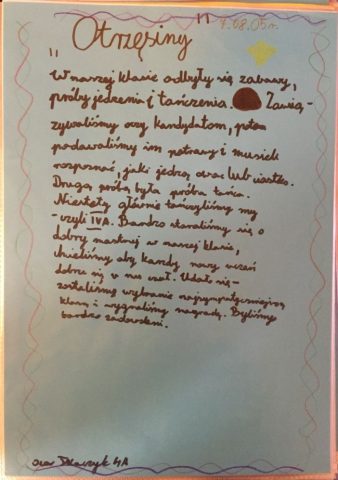 "Otrzęsiny"
7.08.05r.
W naszej klasie odbyły się zabawy,
próby jedzenia i tańczenia. Zawią-
zywaliśmy oczy kandydatom, potem
podawaliśmy im potrawy i musieli
rozpoznać, jaki jedzą owoc lub ciastko.
Drugą próbą była próba tańca.
Niestety głównie tańczyliśmy my
- czyli IVA. Bardzo staraliśmy się o
dobry nastrój w naszej klasie,
chcieliśmy aby każdy nowy uczeń
dobrze się u nas czuł. Udało się -
zostaliśmy wybrani najsympatyczniejszą
klasą i wygraliśmy nagrodę. Byliśmy
bardzo zadowoleni.
4A